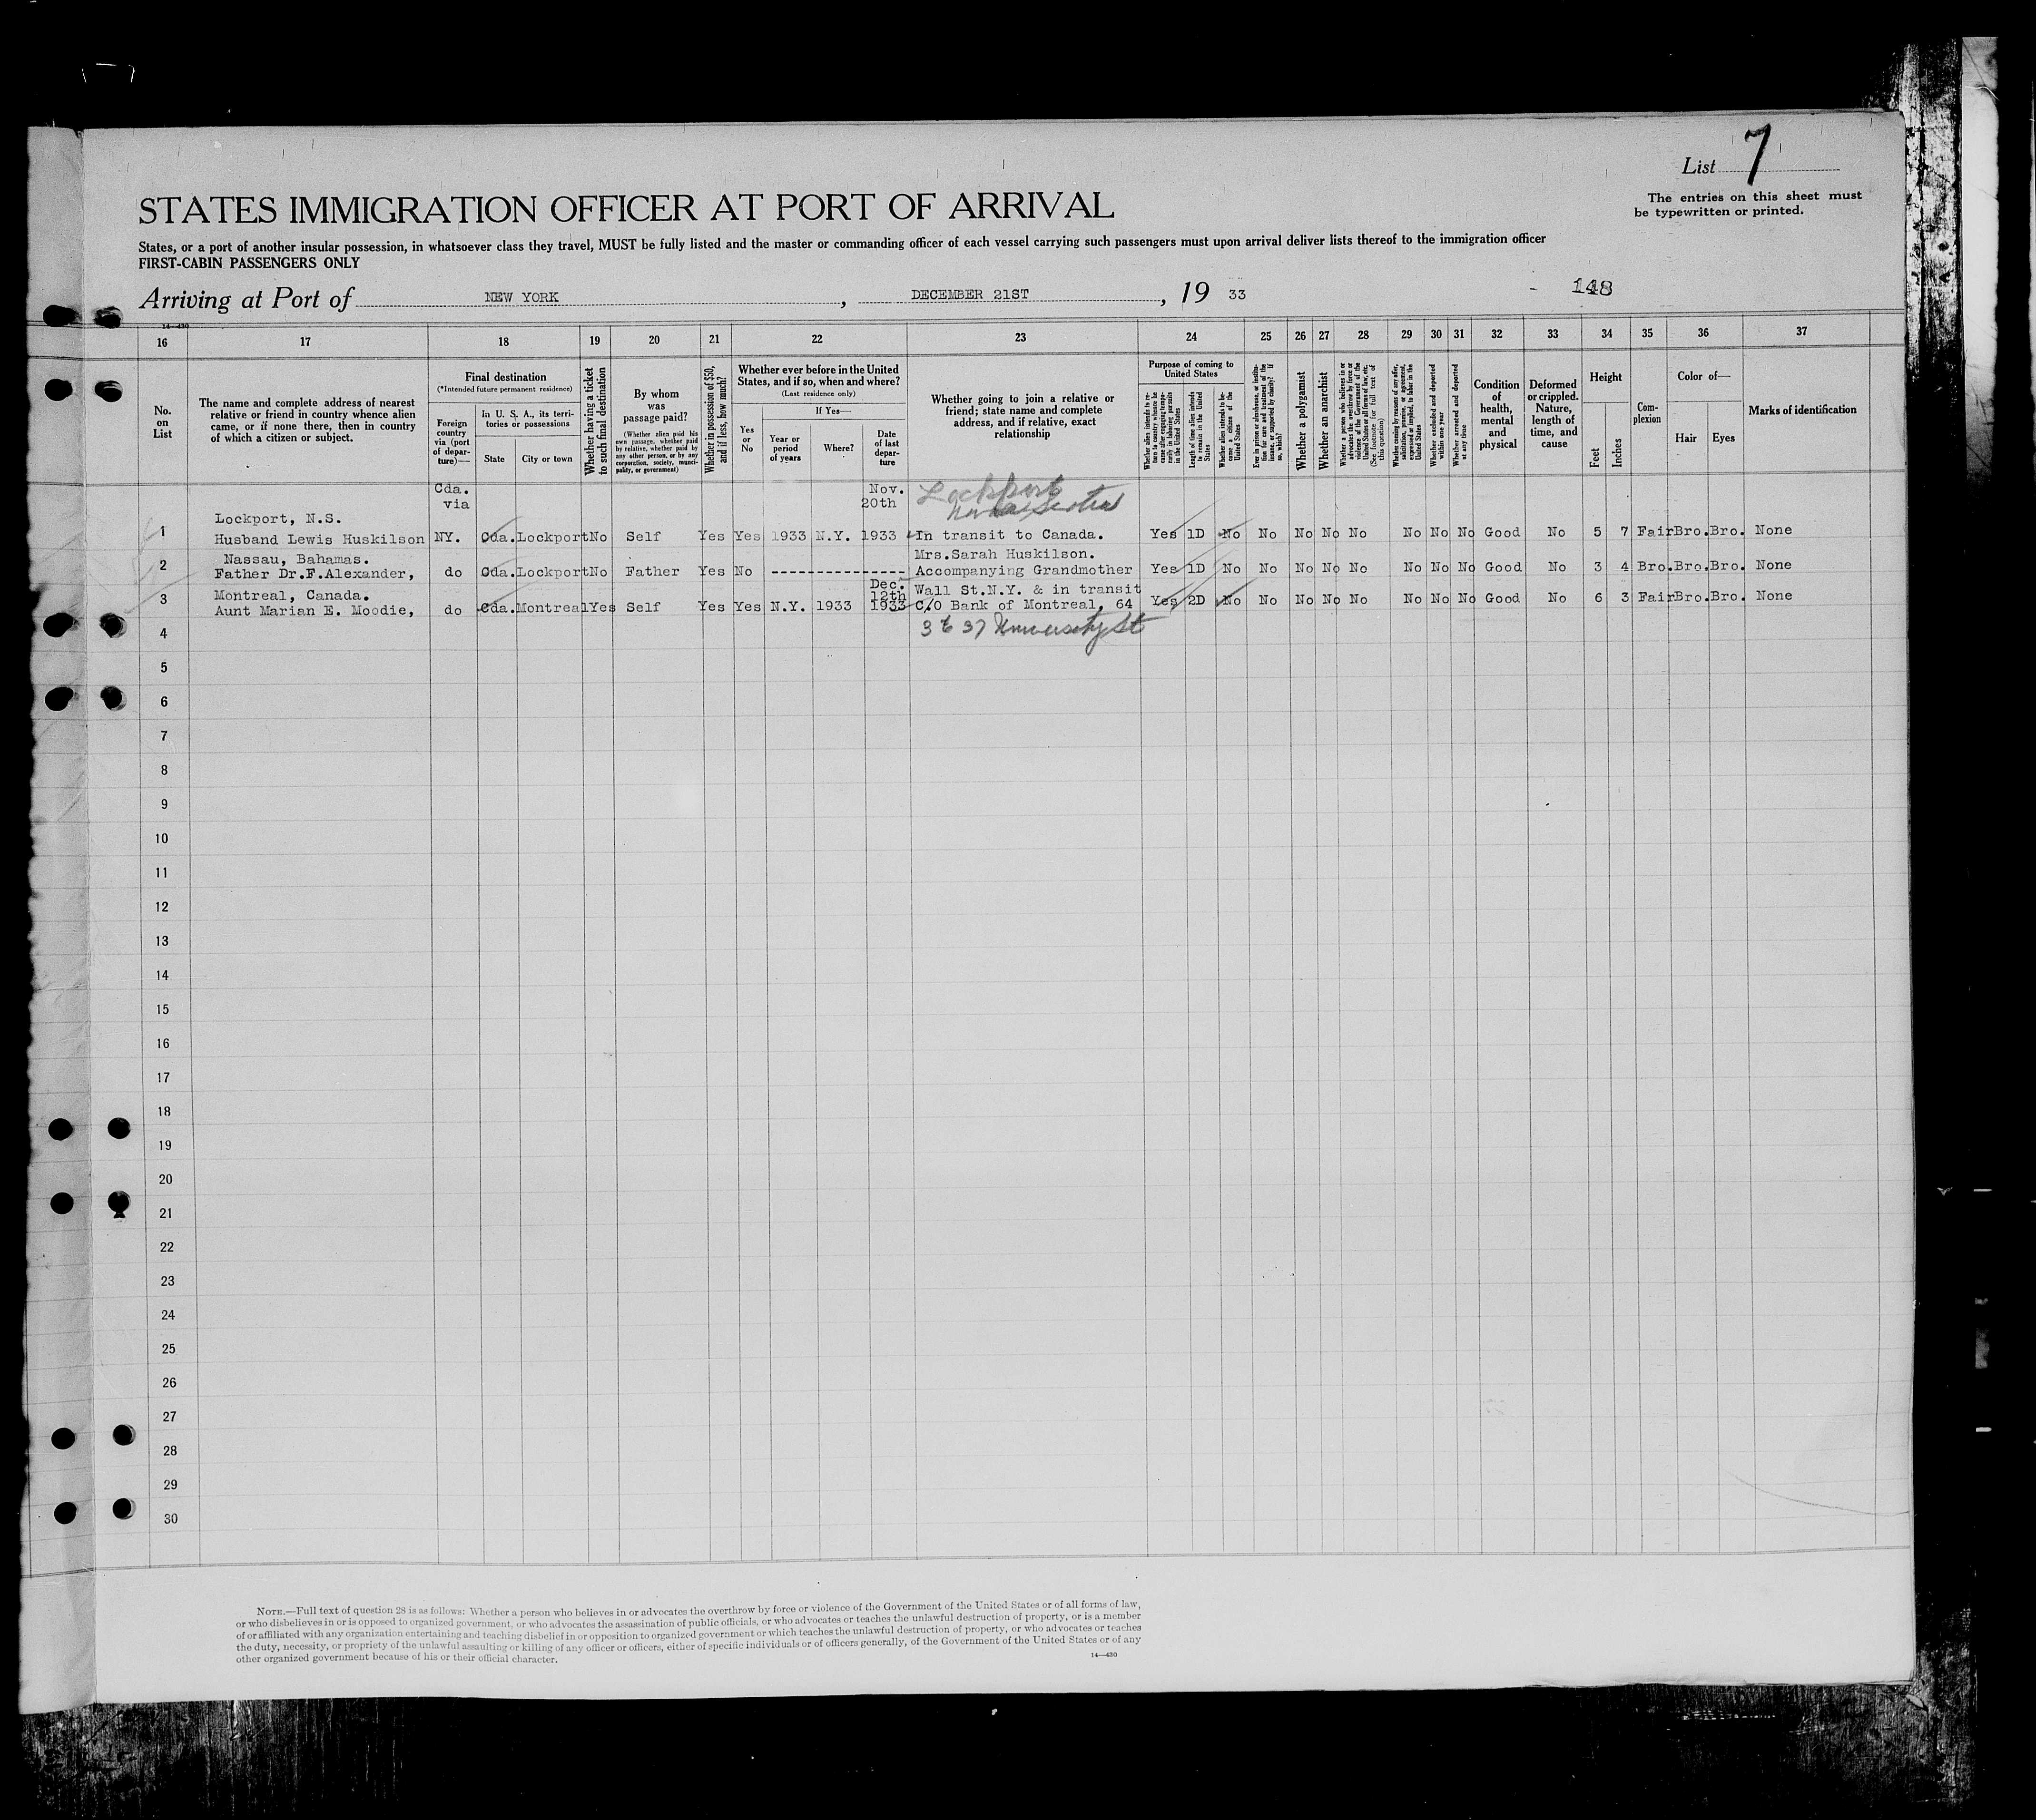 List 7
STATES IMMIGRATION OFFICER AT PORT OF ARRIVAL
The entries on this sheet must
be typewritten or printed.
States, or a port of another insular possession, in whatsoever class they travel, MUST be fully listed and the master or commanding officer of each vessel carrying such passengers must upon arrival deliver lists thereof to the immigration officer
FIRST-CABIN PASSENGERS ONLY
Arriving at Port of NEW YORK, DECEMBER 21ST, 19 33
148
14—430
16 17 18 19 20 21 22 23 24 25 26 27 28 29 30 31 32 33 34 35 36 37
No.
on
List
The name and complete address of nearest
relative or friend in country whence alien
came, or if none there, then in country
of which a citizen or subject.
Final destination
(*Intended future permanent residence)
Foreign
country
via (port
of depar-
ture)—
In U. S. A., its terri-
tories or possessions
State
City or town
Whether having a ticket
to such final destination
By whom
was
passage paid?
(Whether alien paid his
own passage, whether paid
by relative, whether paid by
any other person, or by any
corporation, society, munici-
pality, or government)
Whether in possession of $50,
and if less, how much?
Whether ever before in the United
States, and if so, when and where?
(Last residence only)
Yes
or
No
If Yes—
Year or
period
of years
Where?
Date
of last
depar-
ture
Whether going to join a relative or
friend; state name and complete
address, and if relative, exact
relationship
Purpose of coming to
United States
Whether alien intends to re-
turn to country whence he
came after engaging tempo-
rarily in laboring pursuits
in the United States
Length of time alien intends
to remain in the United
States
Whether alien intends to be-
come a citizen of the
United States
Ever in prison or almshouse, or institu-
tion for care and treatment of the
insane, or supported by charity? If
so, which?
Whether a polygamist
Whether an anarchist
Whether a person who believes in or
advocates the overthrow by force or
violence of the Government of the
United States or all forms of law, etc.
(See footnote for full text of
this question)
Whether coming by reason of any offer,
solicitation, promise, or agreement,
expressed or implied, to labor in the
United States
Whether excluded and deported
within one year
Whether arrested and deported
at any time
Condition
of
health,
mental
and
physical
Deformed
or crippled.
Nature,
length of
time, and
cause
Height
Feet
Inches
Com-
plexion
Color of—
Hair
Eyes
Marks of identification
Cda. Nov. Lockport
via 20th Nova Scotia
Lockport, N.S.
1 Husband Lewis Huskilson NY. Cda. Lockport No Self Yes Yes 1933 N.Y. 1933 In transit to Canada. Yes 1D No No No No No No No No Good No 5 7 Fair Bro. Bro. None
Nassau, Bahamas. Mrs.Sarah Huskilson.
2 Father Dr.F.Alexander, do Cda. Lockport No Father Yes No ---------------- Accompanying Grandmother Yes 1D No No No No No No No No Good No 3 4 Bro. Bro. Bro. None
Dec.
Montreal, Canada. 12th Wall St.N.Y. & in transit
3 Aunt Marian E. Moodie, do Cda. Montreal Yes Self Yes Yes N.Y. 1933 1933 C/O Bank of Montreal, 64 Yes 2D No No No No No No No No Good No 6 3 Fair Bro. Bro. None
4 3637 University St
5
6
7
8
9
10
11
12
13
14
15
16
17
18
19
20
21
22
23
24
25
26
27
28
29
30
NOTE.—Full text of question 28 is as follows: Whether a person who believes in or advocates the overthrow by force or violence of the Government of the United States or of all forms of law,
or who disbelieves in or is opposed to organized government, or who advocates the assassination of public officials, or who advocates or teaches the unlawful destruction of property, or is a member
of or affiliated with any organization entertaining and teaching disbelief in or opposition to organized government or which teaches the unlawful destruction of property, or who advocates or teaches
the duty, necessity, or propriety of the unlawful assaulting or killing of any officer or officers, either of specific individuals or of officers generally, of the Government of the United States or of any
other organized government because of his or their official character.
14—430